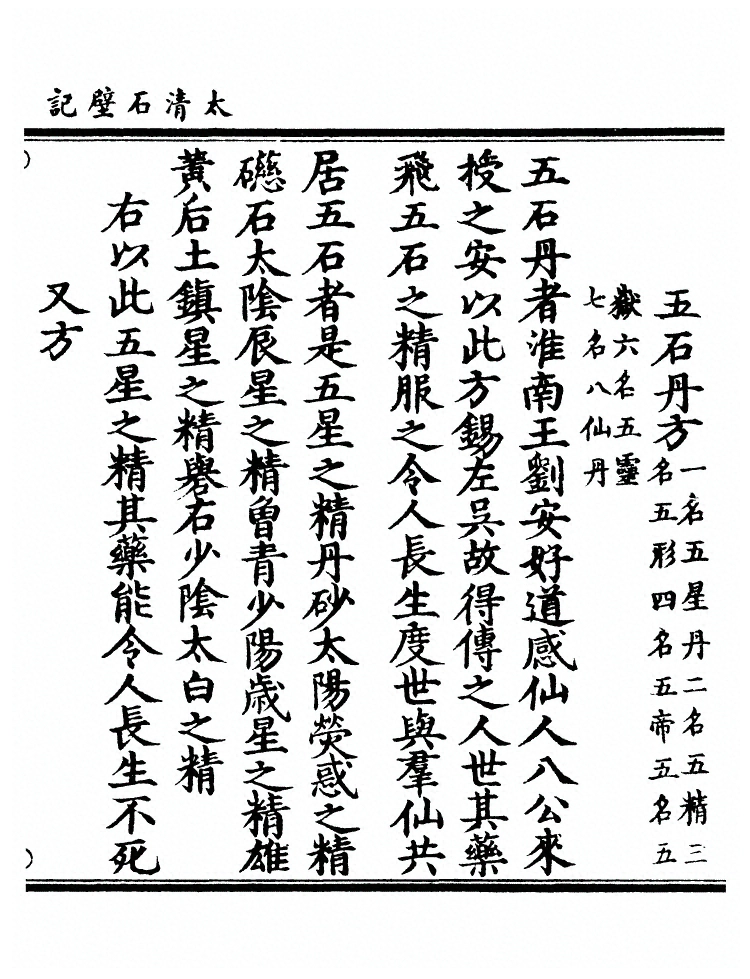 太清石壁記
五石丹方一名五星丹二名五精三
名五形四名五帝五名五
嶽六名五靈
七名八仙丹
五石丹者淮南王劉安好道感仙人八公來
授之安以此方錫左吳故得傳之人世其藥
飛五石之精服之令人長生度世與羣仙共
居五石者是五星之精丹砂太陽熒惑之精
礠石太陰辰星之精曾青少陽歲星之精雄
黃后土鎮星之精礜石少陰太白之精
右以此五星之精其藥能令人長生不死
又方